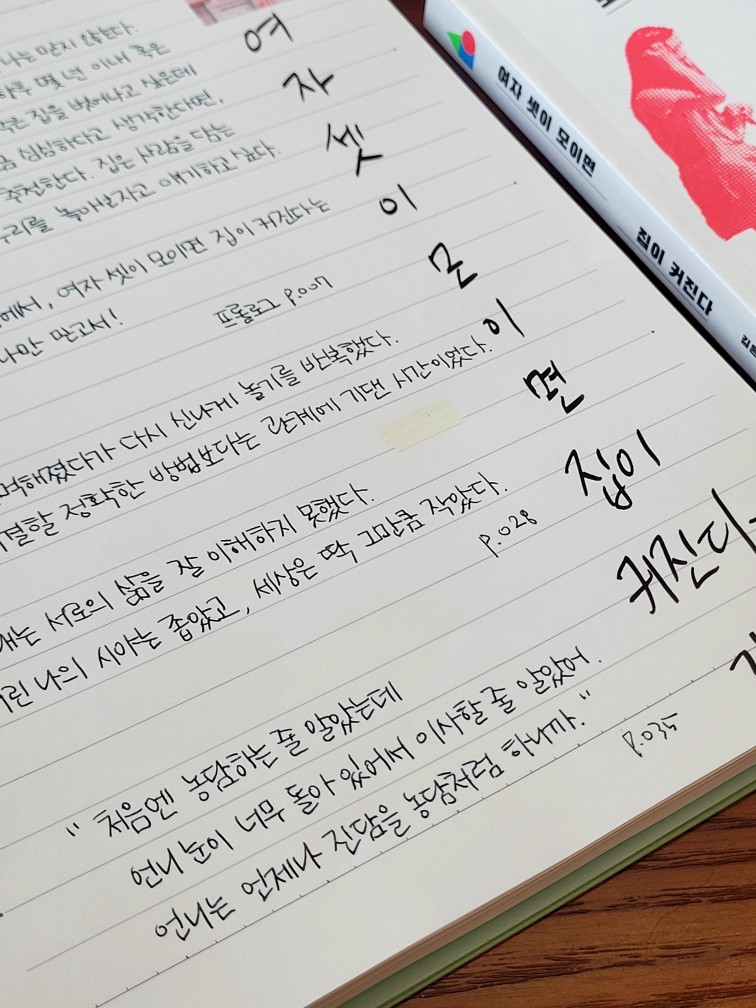 나는 믿지 않는다.
하루 몇 년 이내 혹은
작은 집을 벗어나고 싶은데
심심하다고 생각한다면,
추천한다. 집은 사람을 담는
우리를 녹여보자고 얘기하고 싶다.
에서, 여자 셋이 모이면 집이 커진다는
나만 믿고서!
프롤로그 p.007
먹해졌다가 다시 신나게 놀기를 반복했다.
결할 정확한 방법보다는 관계에 기댄 시간이었다.
내는 서로의 삶을 잘 이해하지 못했다.
린 나의 시야는 좁았고, 세상은 딱 그만큼 작았다.
p.028
"처음엔 농담하는 줄 알았는데
언니 눈이 너무 돌아 있어서 이사할 줄 알았어.
언니는 언제나 진담을 농담처럼 하니까."
p.035
여
자
셋
이
모
이
면
집이
커진다
여자 셋이 모이면
집이 커진다